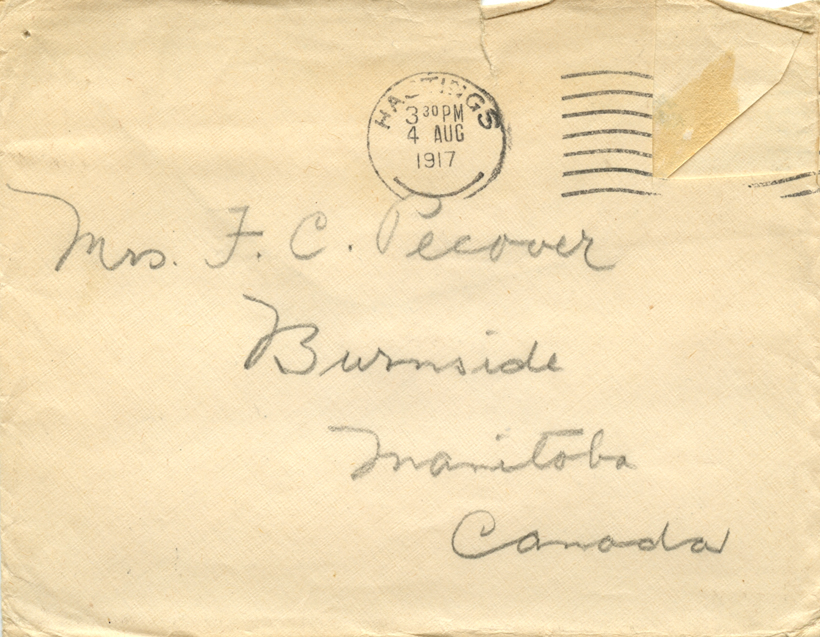 HASTINGS
3 30 PM
4 AUG
1917
Mrs. F. C. Pecover
Burnside
Manitoba
Canada